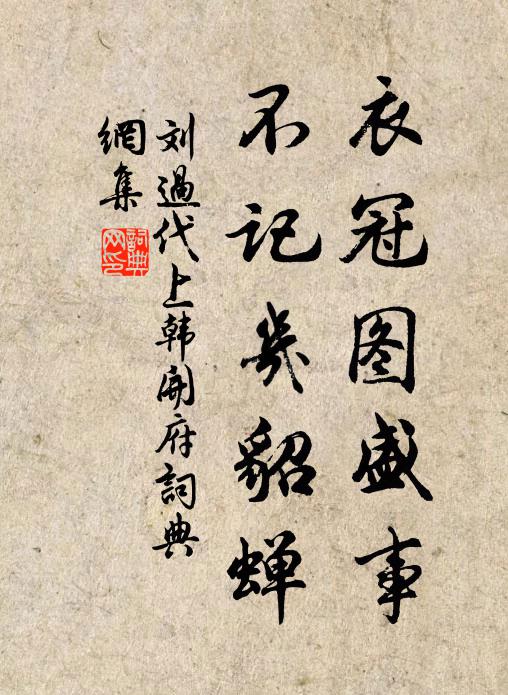 衣冠图盛事
不记几貂蝉
刘过代上韩开府词典
網集
詞典
网印